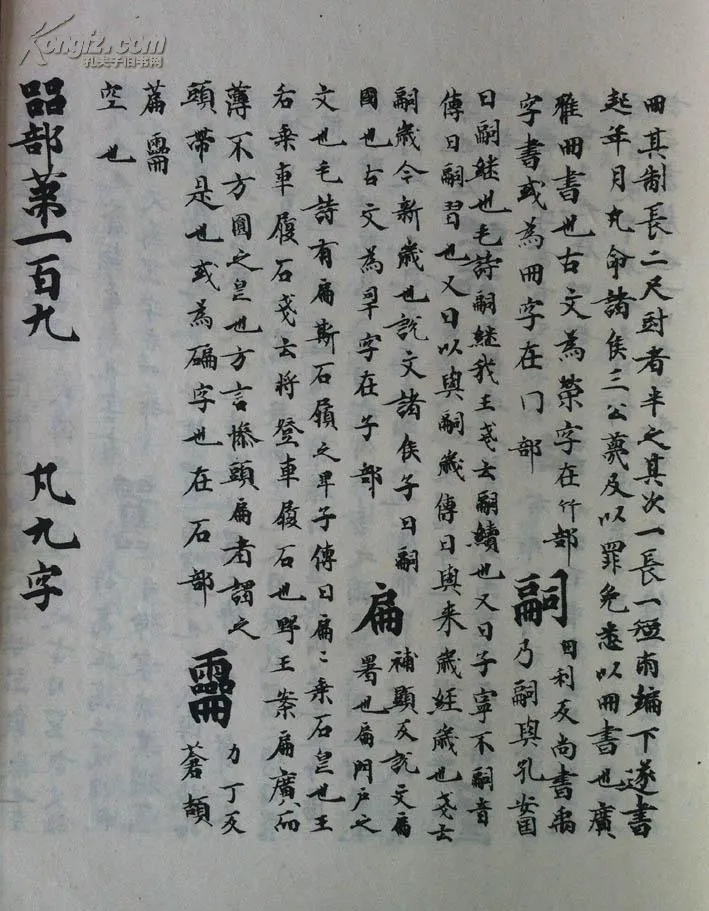 冊其制長二尺對者半之其次一長一短兩編下遂書
起年月凡命諸侯三公薨及以罪免悉以冊書也廣
雅冊書也古文為䇲字在竹部
字書或為冊字在冂部
嗣
囙利反尚書禹
乃嗣興孔安国
曰嗣継也毛詩嗣継我王戔云嗣續也又曰子寧不嗣音
傳曰嗣習也又曰以興嗣歲傳曰興来歲経歲也戔云
嗣歲今新歲也說文諸侯子曰嗣
國也古文為字在子部
扁
補顯反說文扁
署也扁門戶之
文也毛詩有扁斯石履之卑子傳曰扁〻乗石皃也王
右乗車履石戔云將登車履石也野王案扁廣而
薄不方圓之皃也方言惨頭扁者謂之
頭帶是也或為碥字也在石部
力丁反
蒼頡
篇
空也
㗊部苐一百九 凡九字
Kongfz.com
孔夫子旧书网